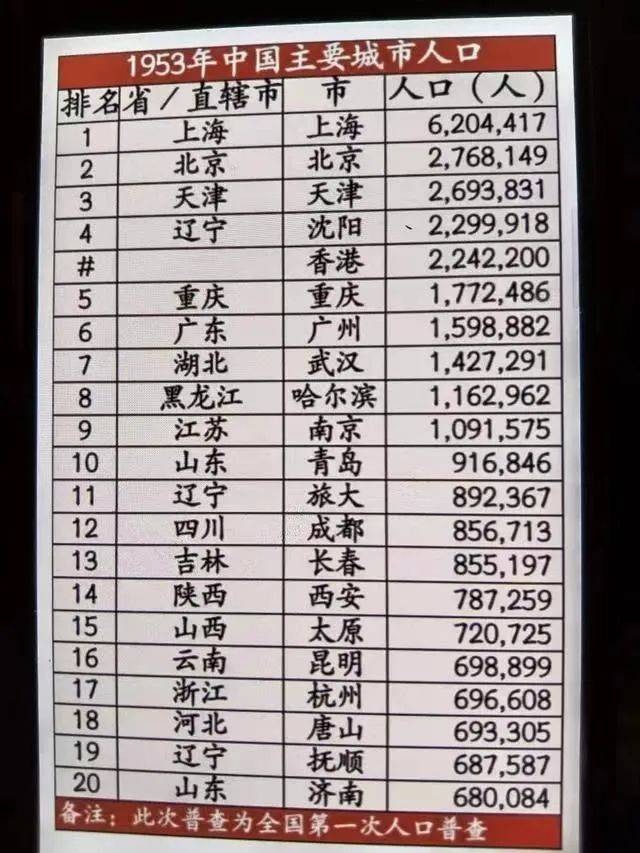 1953年中国主要城市人口
排名 省/直辖市 市 人口(人)
1 上海 上海 6,204,417
2 北京 北京 2,768,149
3 天津 天津 2,693,831
4 辽宁 沈阳 2,299,918
# 香港 2,242,200
5 重庆 重庆 1,772,486
6 广东 广州 1,598,882
7 湖北 武汉 1,427,291
8 黑龙江 哈尔滨 1,162,962
9 江苏 南京 1,091,575
10 山东 青岛 916,846
11 辽宁 旅大 892,367
12 四川 成都 856,713
13 吉林 长春 855,197
14 陕西 西安 787,259
15 山西 太原 720,725
16 云南 昆明 698,899
17 浙江 杭州 696,608
18 河北 唐山 693,305
19 辽宁 抚顺 687,587
20 山东 济南 680,084
备注：此次普查为全国第一次人口普查